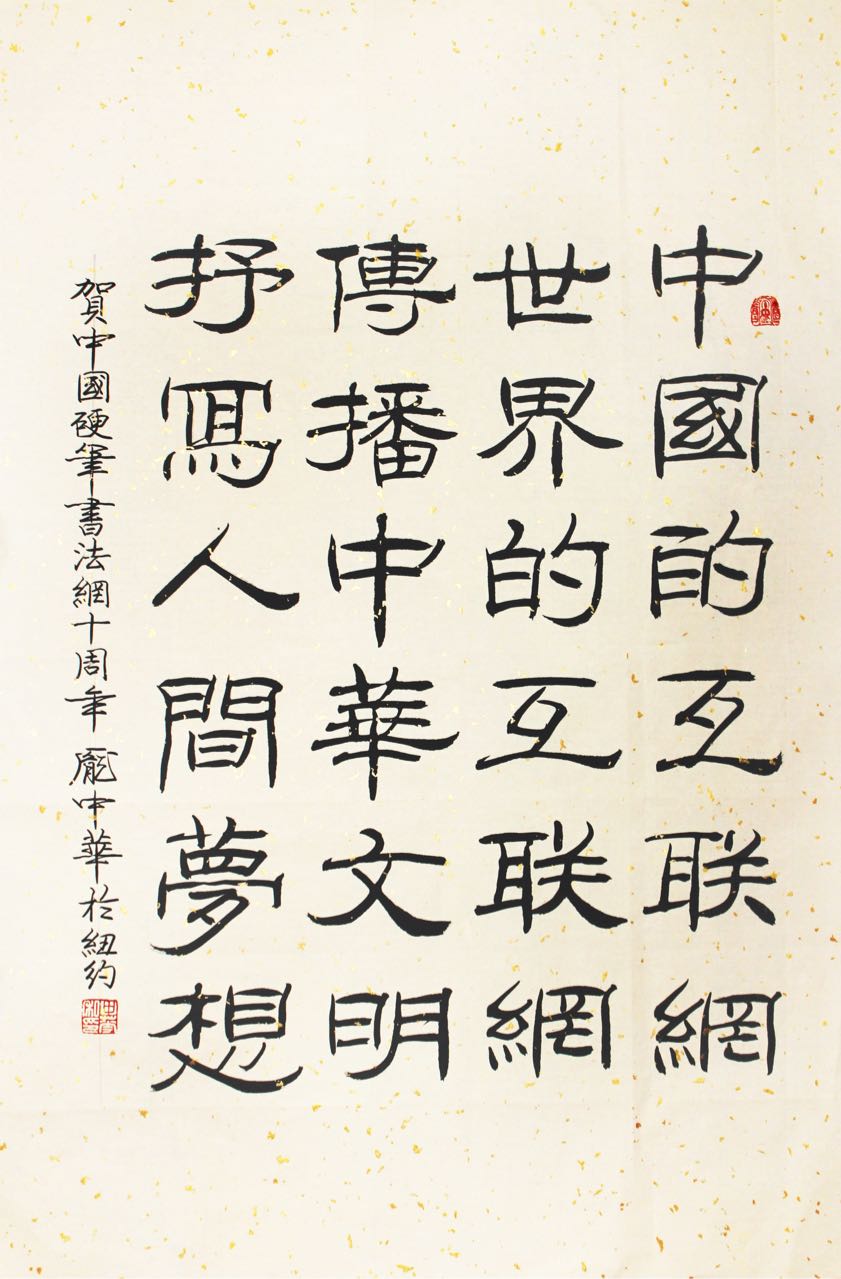 中國的互联網
世界的互联網
傳播中華文明
抒寫人間夢想
賀中國硬筆書法網十周年 龐中華於紐約